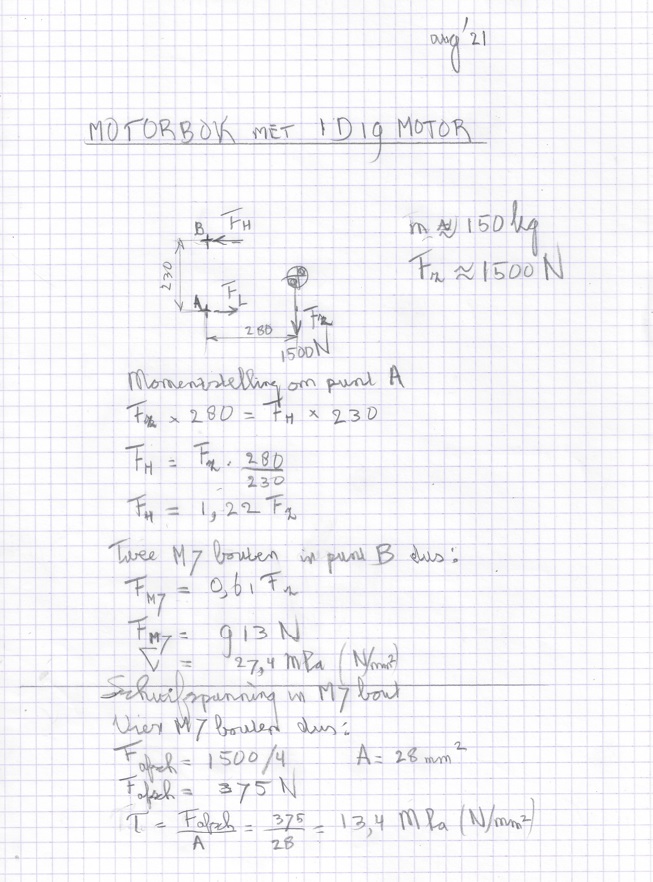 aug '21
MOTORBOK MET 1D19 MOTOR
B FH
230
A FL
280
Fz
1500N
m ≈ 150 kg
Fz ≈ 1500 N
Momentstelling om punt A
Fz × 280 = FH × 230
FH = Fz . 280/230
FH = 1,22 Fz
Twee M7 bouten in punt B dus:
FM7 = 0,61 Fz
FM7 = 913 N
∇ = 27,4 MPa (N/mm²)
Schuifspanning in M7 bout
Vier M7 bouten dus:
Fafsch = 1500/4 A = 28 mm²
Fafsch = 375 N
τ = Fafsch/A = 375/28 = 13,4 MPa (N/mm²)